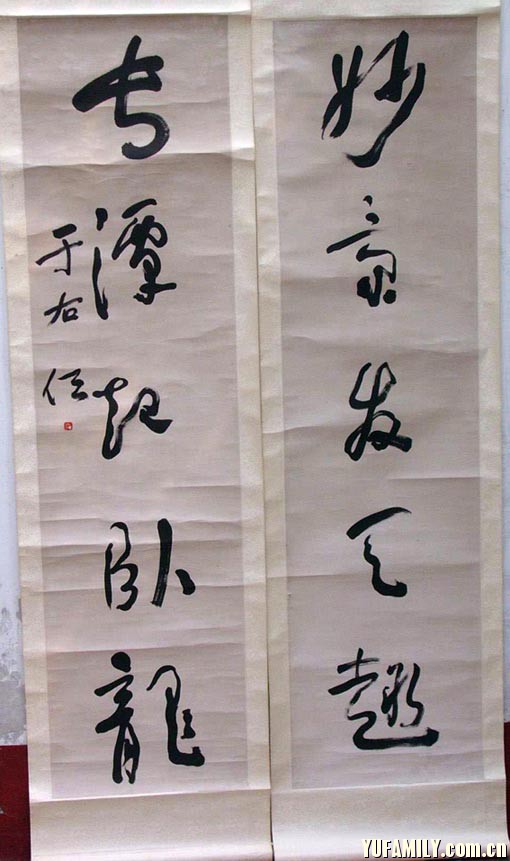 妙發天趣
潭起卧龍
于右任
YUFAMILY.com.cn